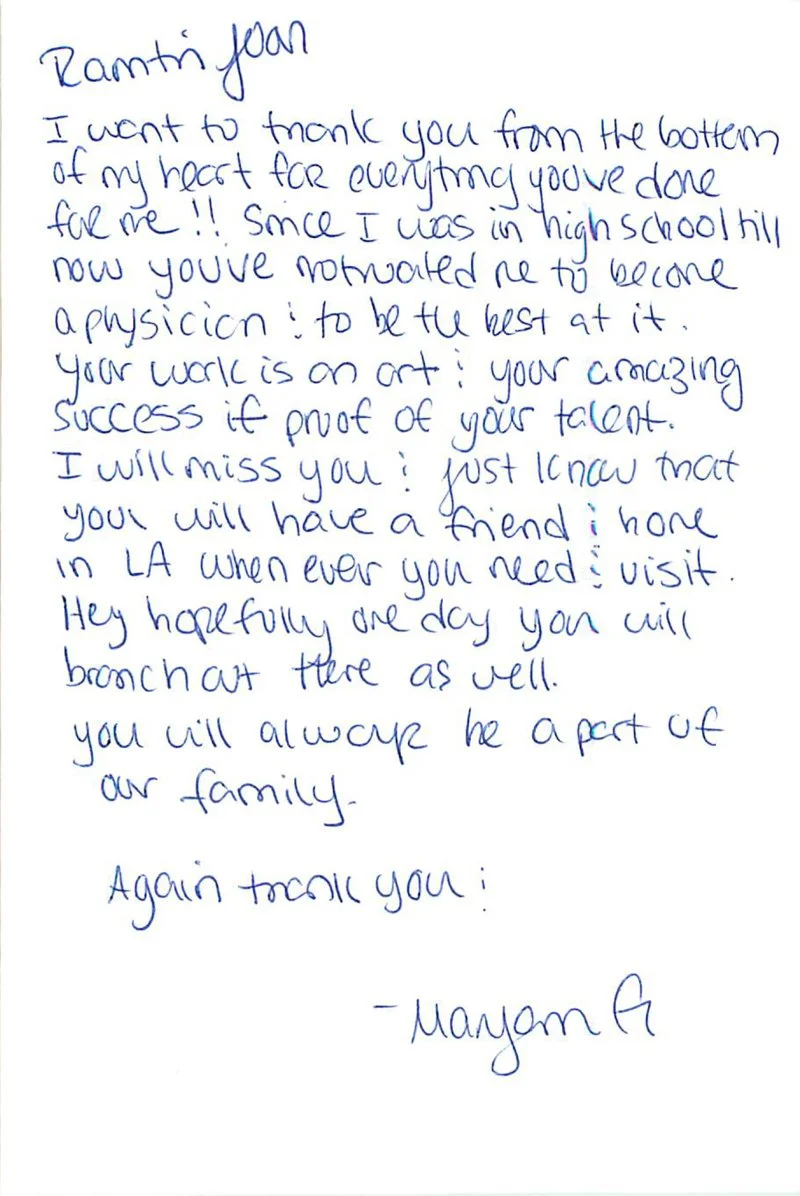 Ramtin Joan
I want to thank you from the bottom
of my heart for everything youve done
for me!! Since I was in high school till
now youve motivated me to become
a physician & to be the best at it.
Your work is an art & your amazing
success if proof of your talent.
I will miss you & just know that
your will have a friend & home
in LA when ever you need & visit.
Hey hopefully one day you will
branch out there as well.
you will always be a part of
our family.
Again thank you!
- Maryam G